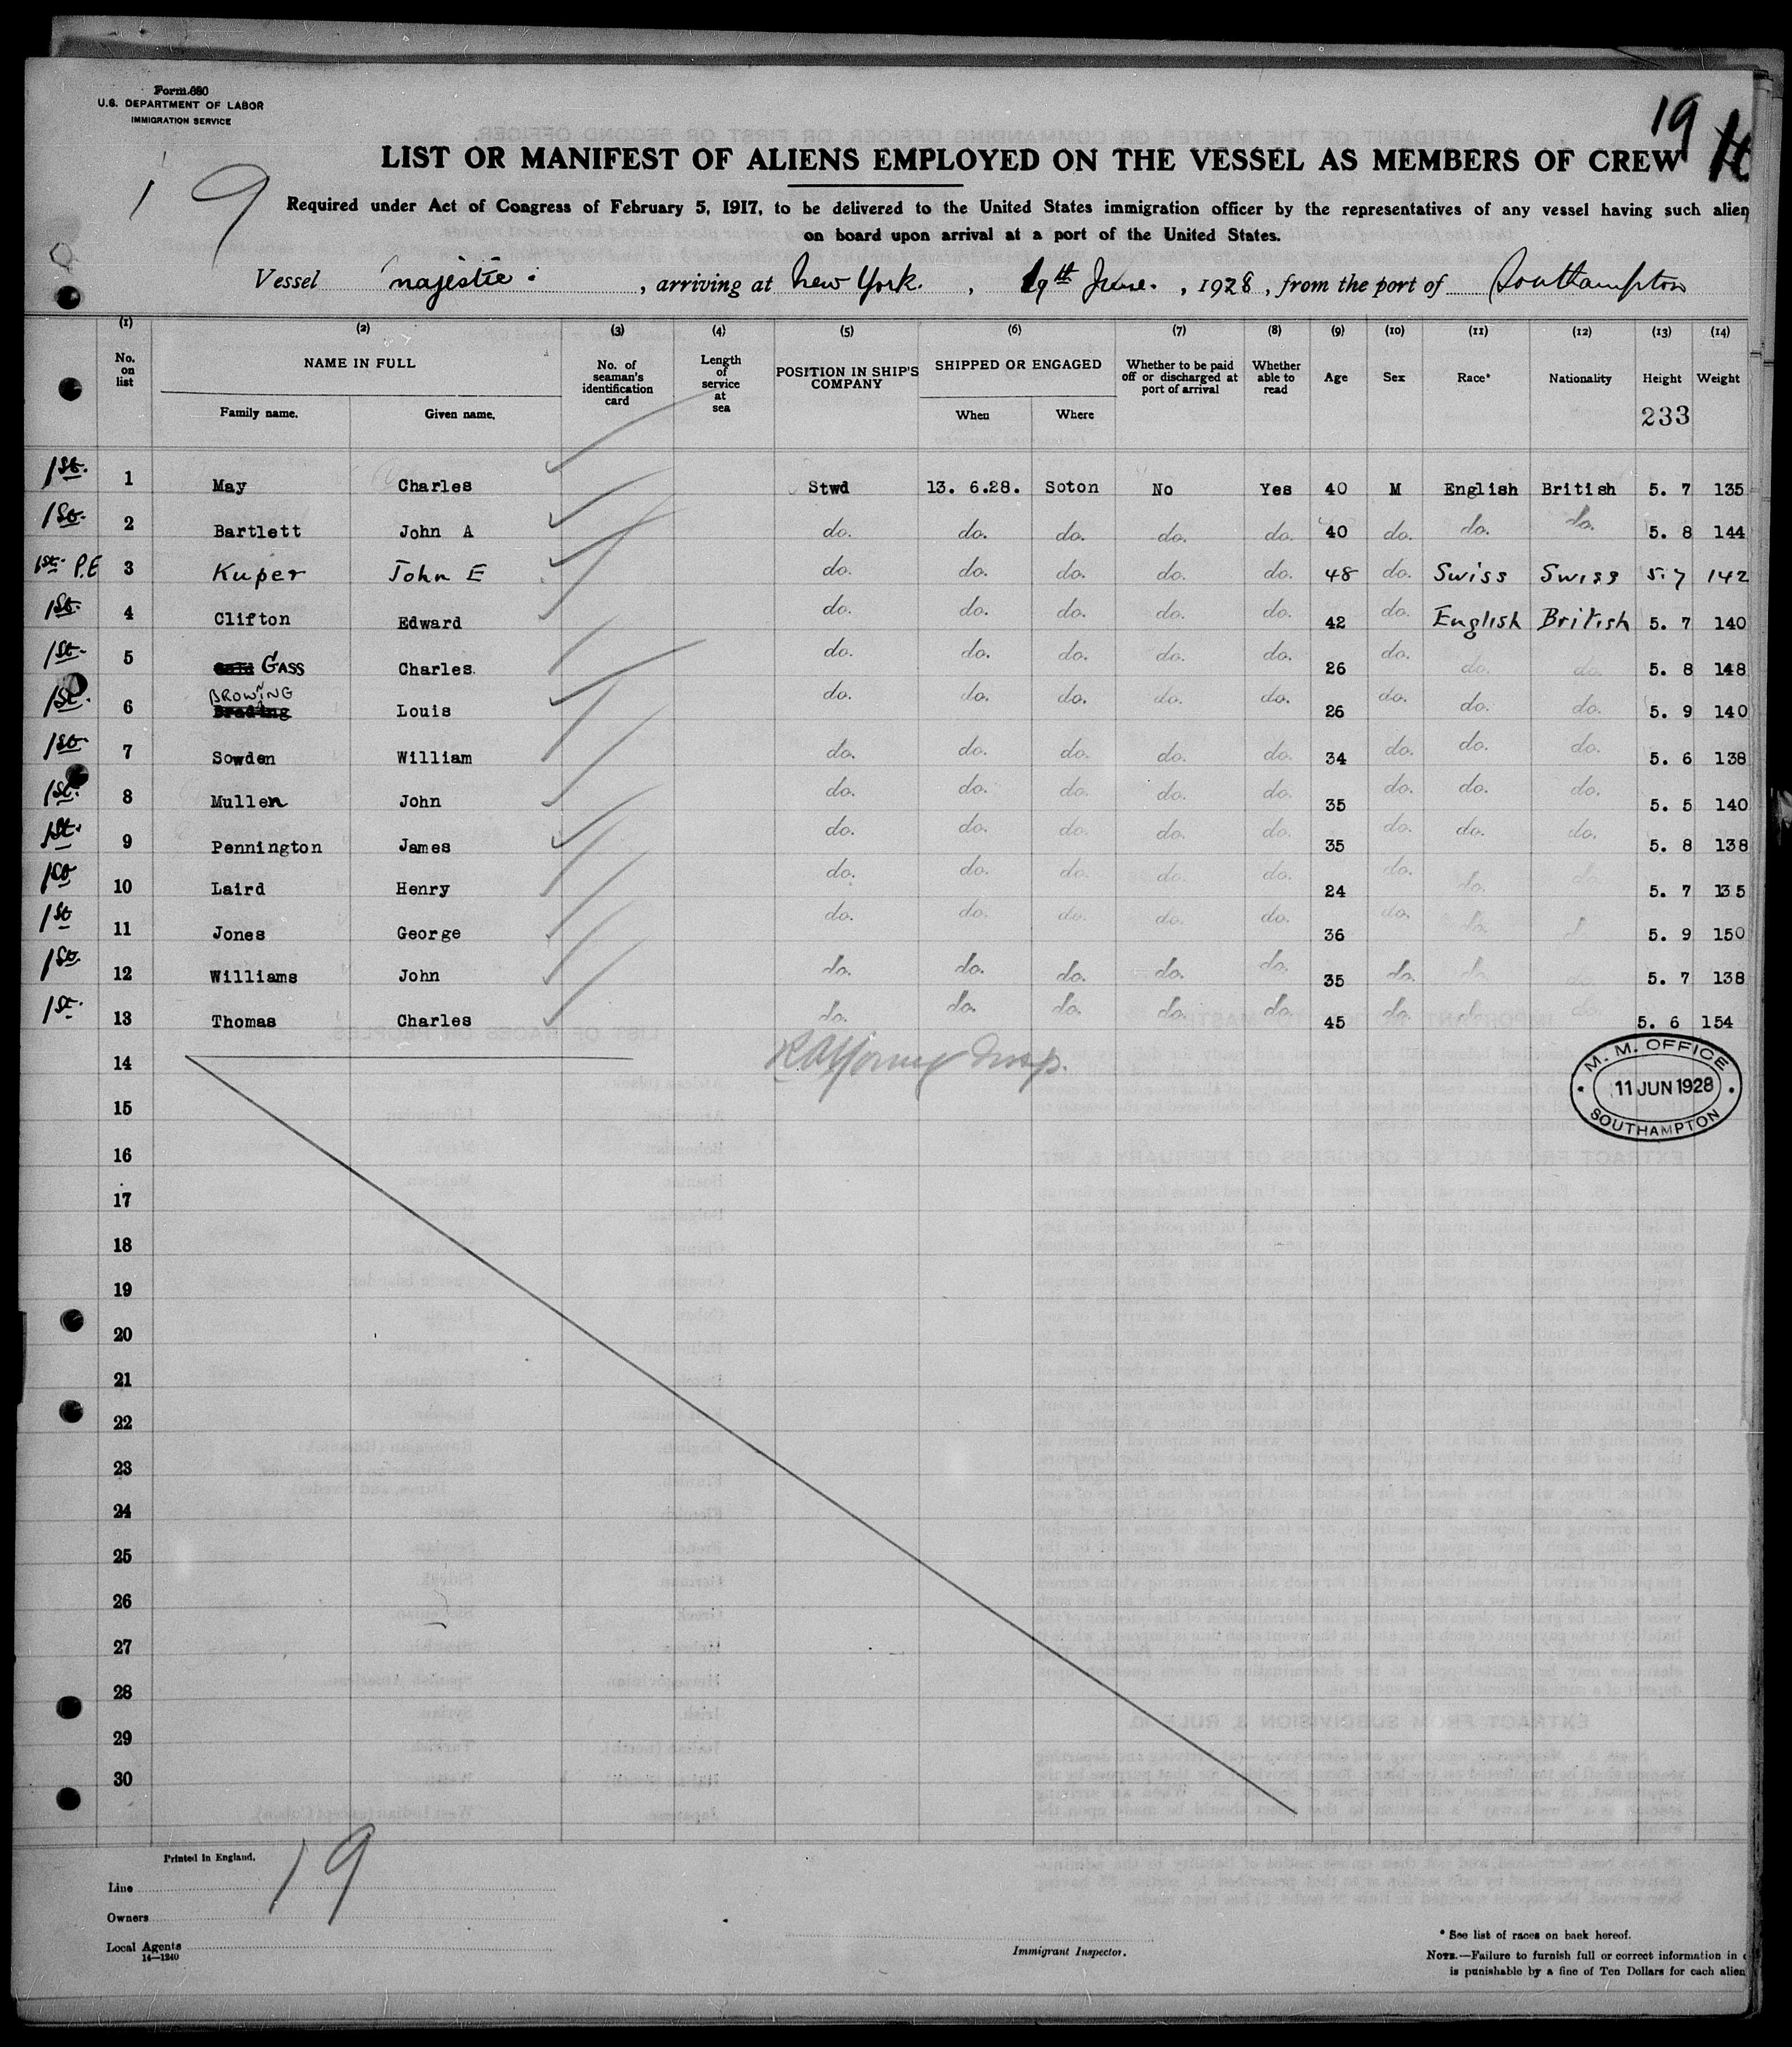 Form 680
U.S. DEPARTMENT OF LABOR
IMMIGRATION SERVICE
19
19
LIST OR MANIFEST OF ALIENS EMPLOYED ON THE VESSEL AS MEMBERS OF CREW
Required under Act of Congress of February 5, 1917, to be delivered to the United States immigration officer by the representatives of any vessel having such alien
on board upon arrival at a port of the United States.
Vessel Majestic. , arriving at New York. , 19th June. , 1928, from the port of Southampton
(1) (2) (3) (4) (5) (6) (7) (8) (9) (10) (11) (12) (13) (14)
No. on list NAME IN FULL No. of seaman's identification card Length of service at sea POSITION IN SHIP'S COMPANY SHIPPED OR ENGAGED Whether to be paid off or discharged at port of arrival Whether able to read Age Sex Race* Nationality Height Weight
Family name. Given name. When Where 233
1st. 1 May Charles Stwd 13. 6.28. Soton No Yes 40 M English British 5. 7 135
1st. 2 Bartlett John A do. do. do. do. do. 40 do. do. do. 5. 8 144
1st. P.E 3 Kuper John E do. do. do. do. do. 48 do. Swiss Swiss 5.7 142
1st. 4 Clifton Edward do. do. do. do. do. 42 do. English British 5. 7 140
1st. 5 GASS Charles. do. do. do. do. do. 26 do. do. do. 5. 8 148
1st. 6 BROWNING Louis do. do. do. do. do. 26 do. do. do. 5. 9 140
1st. 7 Sowden William do. do. do. do. do. 34 do. do. do. 5. 6 138
1st. 8 Mullen John do. do. do. do. do. 35 do. do. do. 5. 5 140
1st. 9 Pennington James do. do. do. do. do. 35 do. do. do. 5. 8 138
1st 10 Laird Henry do. do. do. do. do. 24 do. do. do. 5. 7 135
1st 11 Jones George do. do. do. do. do. 36 do. do. do. 5. 9 150
1st. 12 Williams John do. do. do. do. do. 35 do. do. do. 5. 7 138
1st. 13 Thomas Charles do. do. do. do. do. 45 do. do. do. 5. 6 154
14
M. M. OFFICE
11 JUN 1928
SOUTHAMPTON
15
16
17
18
19
20
21
22
23
24
25
26
27
28
29
30
Printed in England.
19
Line
Owners
Local Agents
14—1240
Immigrant Inspector.
* See list of races on back hereof.
NOTE.—Failure to furnish full or correct information in
is punishable by a fine of Ten Dollars for each alien